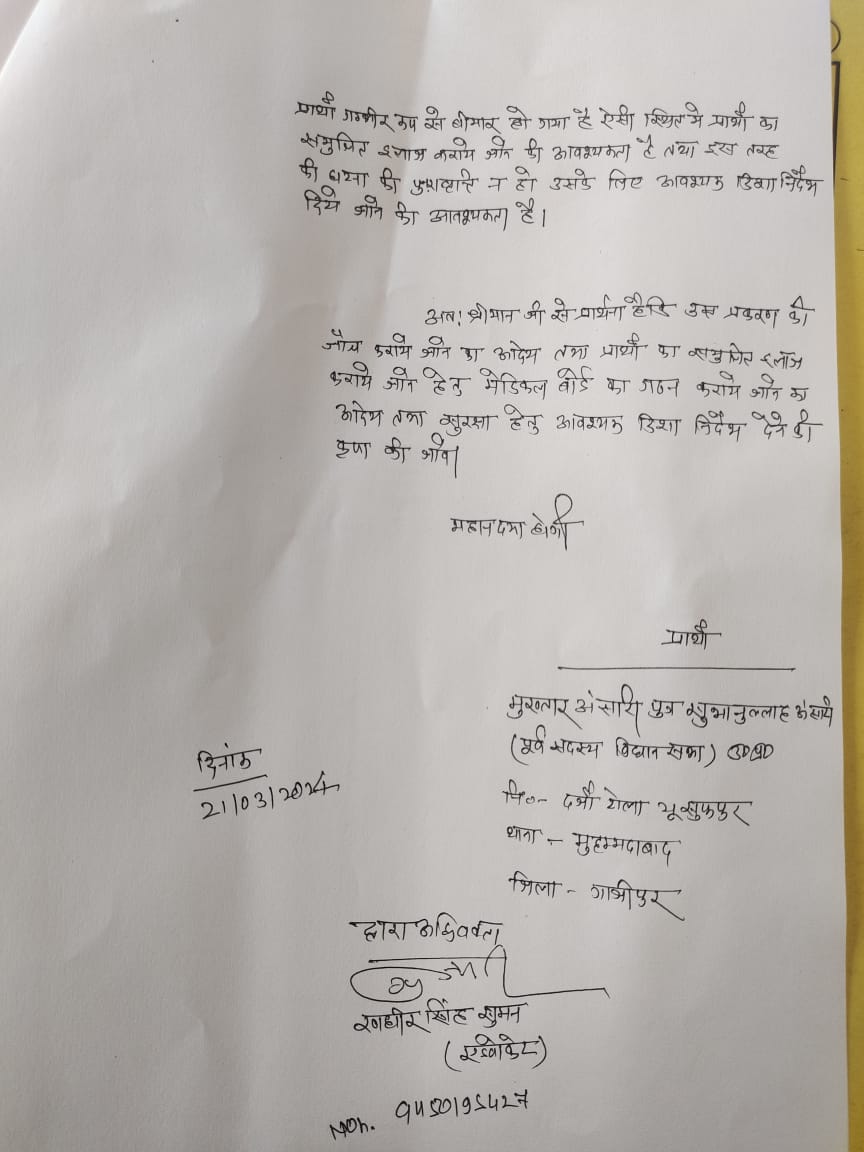 प्रार्थी गम्भीर रूप से बीमार हो गया है ऐसी स्थिति मे प्रार्थी का
समुचित इलाज कराये जाने की आवश्यकता है तथा इस तरह
की घटना की पुनरावृत्ति न हो उसके लिए आवश्यक दिशा निर्देश
दिये जाने की आवश्यकता है।
अतः श्रीमान जी से प्रार्थना है कि उक्त प्रकरण की
जाँच कराये जाने का आदेश तथा प्रार्थी का समुचित इलाज
कराये जाने हेतु मेडिकल बोर्ड का गठन कराये जाने का
आदेश तथा सुरक्षा हेतु आवश्यक दिशा निर्देश देने की
कृपा की जाये।
महान दया होगी
प्रार्थी
मुख्तार अंसारी पुत्र सुभानुल्लाह अंसारी
(पूर्व सदस्य विधान सभा)
नि०- दर्जी टोला यूसुफपुर
थाना - मुहम्मदाबाद
जिला - गाजीपुर
दिनांक
21/03/2024
द्वारा अधिवक्ता
रणधीर सिंह सुमन
(एडवोकेट)
Moh. 9450195427